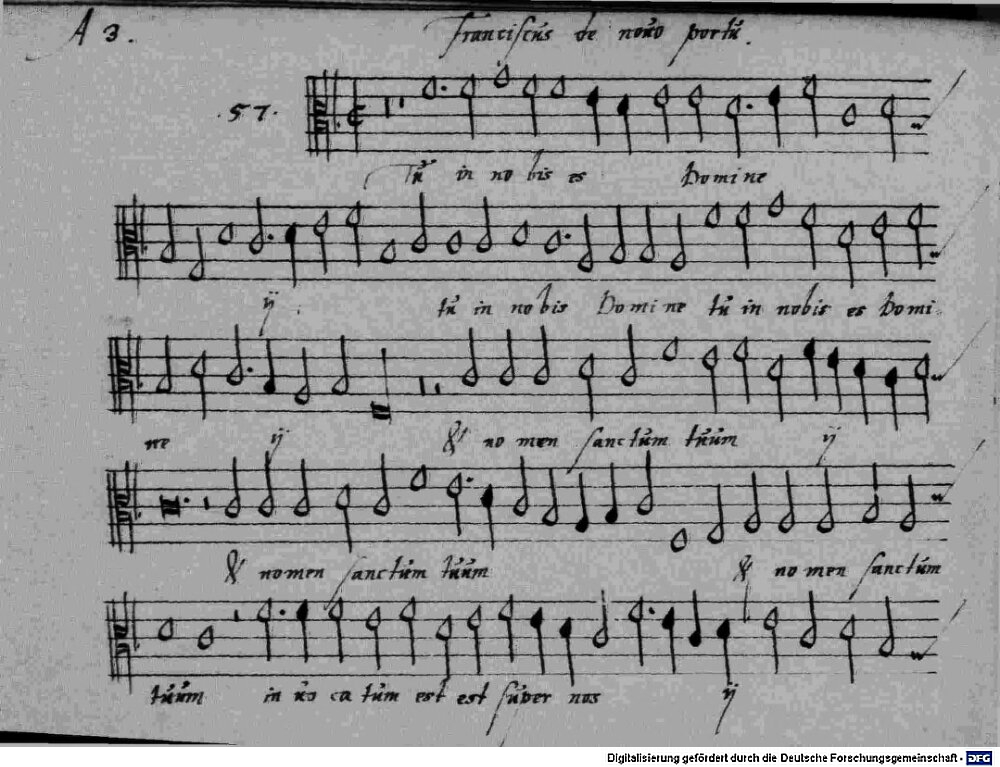 A 3. Franciscus de nouo portu.
.57.
Tu in no bis es Domine
ij. tu in nobis Domine tu in nobis es Domi
ne ij & no men sanctum tuum ij
& nomen sanctum tuum & nomen sanctum
tuum in uo ca tum est est super nos ij
Digitalisierung gefördert durch die Deutsche Forschungsgemeinschaft - DFG